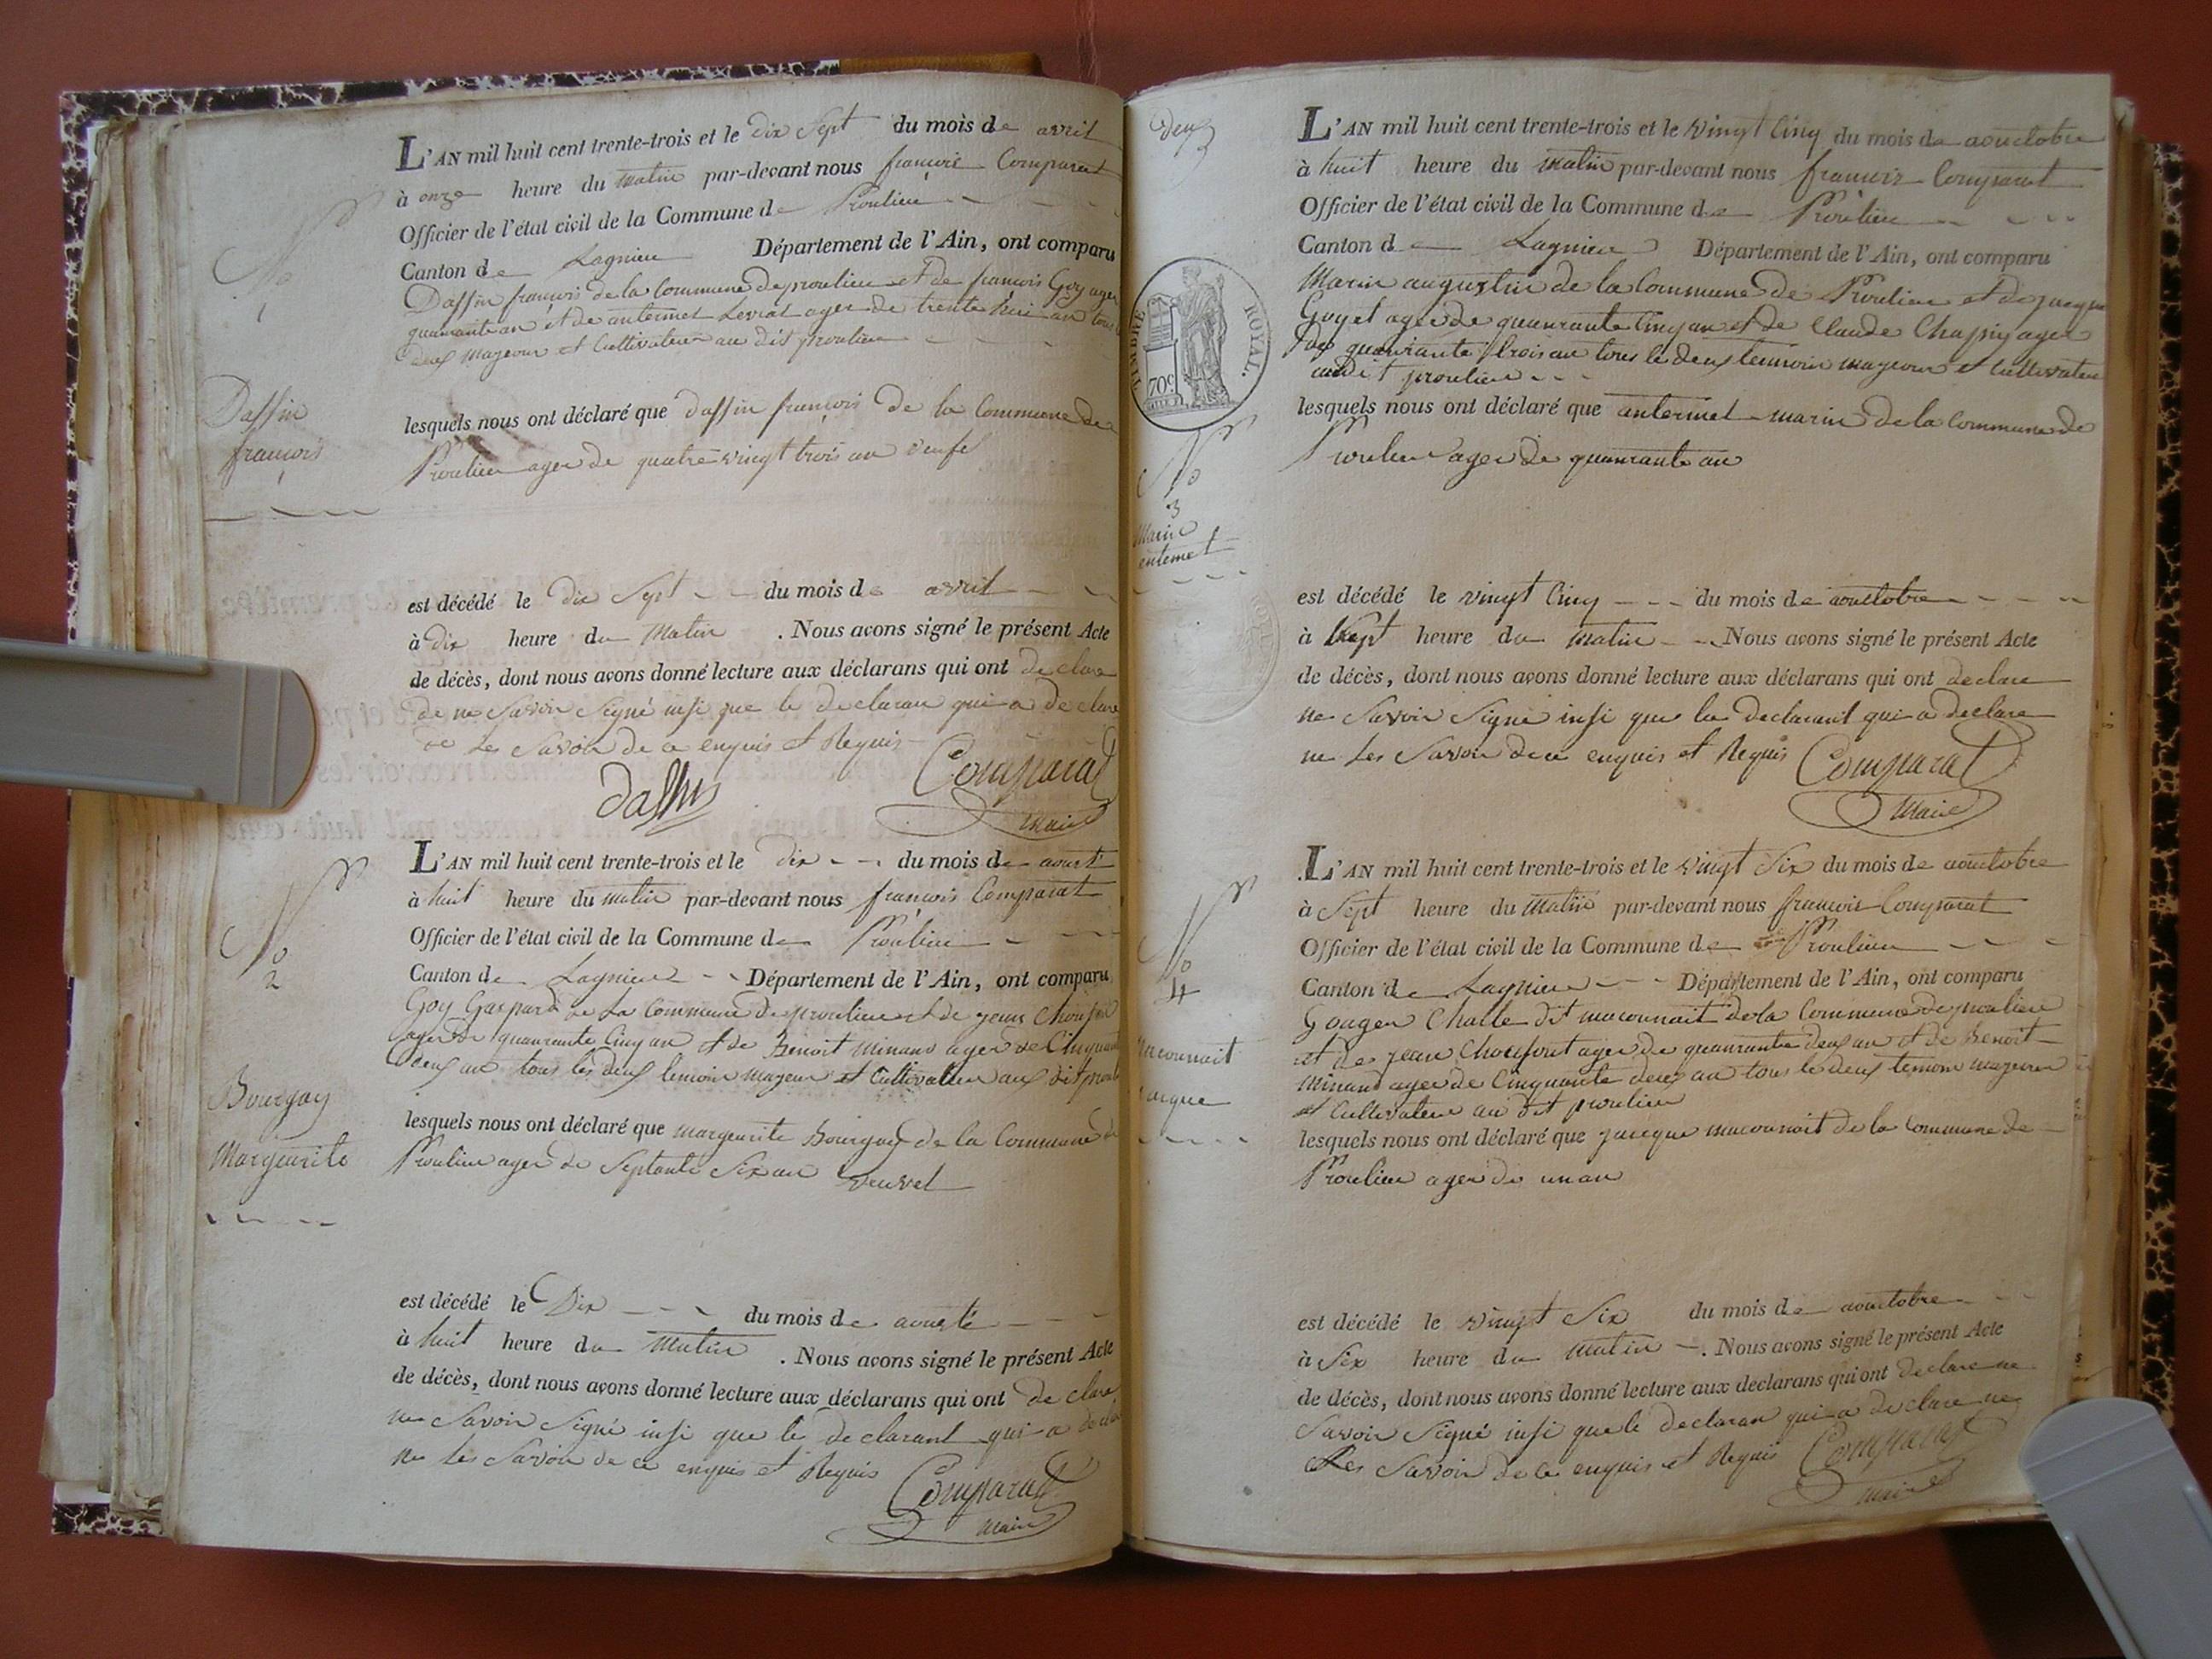 L'AN mil huit cent trente-trois et le dix Sept du mois de avril
à onze heure du matin par-devant nous françois Comparat
Officier de l'état civil de la Commune de Proulieu
Canton de Lagnieu Département de l'Ain, ont comparu
Daffin françois de la Commune de proulieu et de françois Goy ager
quarante an et de antermet Levrat ager de trente an tous
deux mageour et Cultivateur au dit proulieu
N° 1
Daffin
françois
lesquels nous ont déclaré que daffin françois de la Commune de
Proulieu ager de quatre vingt trois an veufe
est décédé le dix Sept du mois de avril
à dix heure du Matin . Nous avons signé le présent Acte
de décès, dont nous avons donné lecture aux déclarans qui ont declare
de ne Savoir Signé insi que le declaran qui a declare
de Les Savoir de ce enquis et Requis
daffin Comparat
maire
L'AN mil huit cent trente-trois et le dix du mois de aoust
à huit heure du matin par-devant nous françois Comparat
Officier de l'état civil de la Commune de Proulieu
N° 2
Canton de Lagnieu Département de l'Ain, ont comparu
Goy Gaspard de La Commune de proulieu et de jean
ager de quanrante Cinq an et de Benoit minand ager de Cinquante
deux an tous les deux temoin mageur et Cultivateur aux dit
Bourgay
Marguerite
lesquels nous ont déclaré que marguerite Bourgay de la Commune de
Proulieu ager de Septante Six an veuvet
est décédé le Dix du mois de aousté
à huit heure du Matin . Nous avons signé le présent Acte
de décès, dont nous avons donné lecture aux déclarans qui ont declare
ne Savoir Signé insi que le declarant qui a
ne Les Savoir de ce enquis et Requis Comparat
maire
deux
L'AN mil huit cent trente-trois et le vingt Cinq du mois de aouctobre
à huit heure du matin par-devant nous francois Comparat
Officier de l'état civil de la Commune de Proulieu
Canton de Lagnieu Département de l'Ain, ont comparu
Marin augustin de la Commune de Proulieu et de jacque
Goyet ager de quanrante Cinq an et de Claude Chapuy ager
de quanrante trois an tous le deux temoin mageour et Cultivateur
au dit proulieu
TIMBRE ROYAL.
70c
N° 3
Marin
entemet
lesquels nous ont déclaré que antermet marin de la commune de
Proulieu ager de quanrante an
est décédé le vingt Cinq du mois de aouctobre
à Sept heure du matin Nous avons signé le présent Acte
de décès, dont nous avons donné lecture aux déclarans qui ont declare
ne Savoir Signé insi que le declarant qui a declare
ne Les Savoir de ce enquis et Requis Comparat
Maire
L'AN mil huit cent trente-trois et le vingt Six du mois de aouctobre
à Sept heure du Matin par-devant nous francois Comparat
Officier de l'état civil de la Commune de Proulieu
N° 4
Canton de Lagnieu Département de l'Ain, ont comparu
Challe dit maconnait de la Commune de proulieu
et de jean ager de quanrante deux an et de Benoit
Minand ager de Cinquante deux an tous le deux temoin mageour
et Cultivateur au dit proulieu
maconnait
jacque
lesquels nous ont déclaré que jacque maconnait de la commune de
Proulieu ager de un an
est décédé le vingt Six du mois de aouctobre
à Six heure du matin . Nous avons signé le présent Acte
de décès, dont nous avons donné lecture aux déclarans qui ont declare ne
Savoir Signé insi que le declaran qui a declare ne
Les Savoir de ce enquis et Requis Comparat
maire